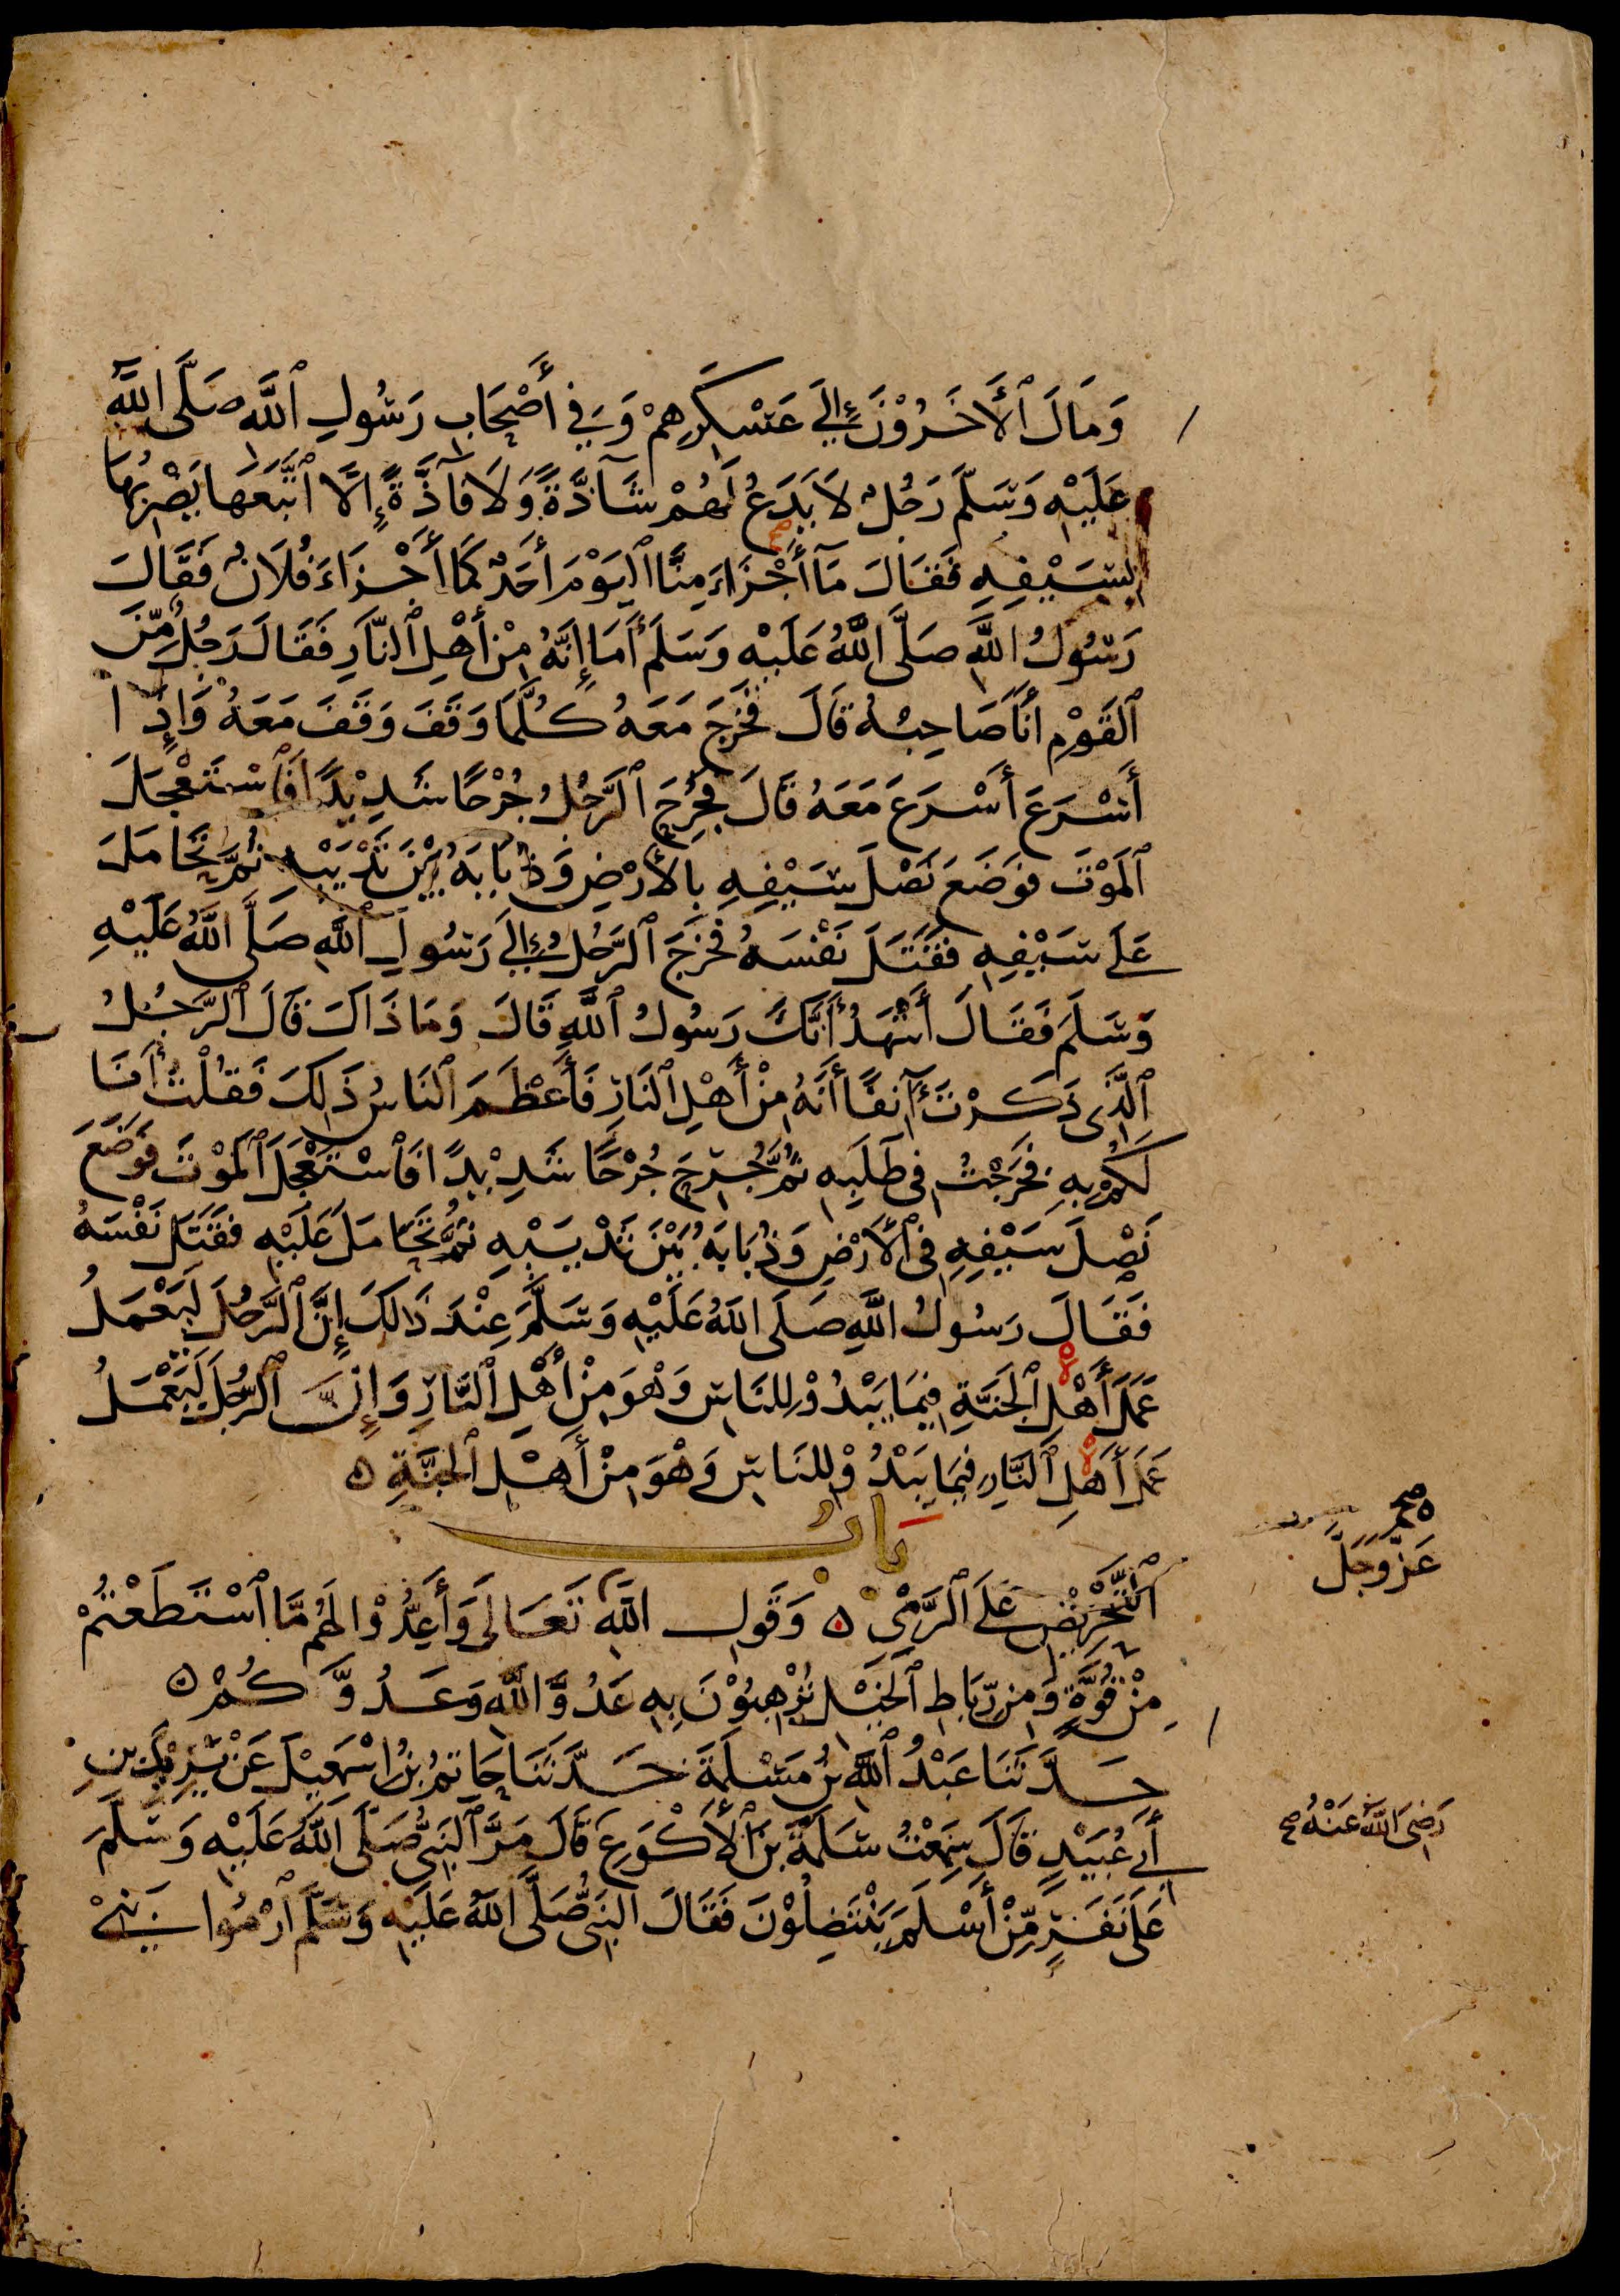 وَمَالَ ٱلْأَخَرُوْنَ إِلَىٰ عَسْكَرِهِمْ وَفِي أَصْحَابِ رَسُولِ ٱللَّهِ صَلَّى اللَّهُ
عَلَيْهِ وَسَلَّمَ رَجُلٌ لَا يَدَعُ لَهُمْ شَآذَّةً وَلَا فَآذَّةً إِلَّا ٱتَّبَعَهَا يَضْرِبُهَا
بِسَيْفِهِ فَقَالَ مَآ أَجْزَاءَ مِنَّا ٱلْيَوْمَ أَحَدٌ كَمَا أَجْزَاءَ فُلَانٌ فَقَالَ
رَسُولُ اللَّهِ صَلَّى اللَّهُ عَلَيْهِ وَسَلَّمَ أَمَا إِنَّهُ مِنْ أَهْلِ ٱلنَّارِ فَقَالَ رَجُلٌ مِّنَ
ٱلْقَوْمِ أَنَا صَاحِبُهُ قَالَ فَخَرَجَ مَعَهُ كُلَّمَا وَقَفَ وَقَفَ مَعَهُ وَإِذَا
أَسْرَعَ أَسْرَعَ مَعَهُ قَالَ فَجُرِحَ ٱلرَّجُلُ جُرْحًا شَدِيْدًا فَٱسْتَعْجَلَ
ٱلْمَوْتَ فَوَضَعَ نَصْلَ سَيْفِهِ بِالْأَرْضِ وَذُبَابَهُ بَيْنَ ثَدْيَيْهِ ثُمَّ تَحَامَلَ
عَلَى سَيْفِهِ فَقَتَلَ نَفْسَهُ فَخَرَجَ ٱلرَّجُلُ إِلَى رَسُولِ ٱللَّهِ صَلَّى اللَّهُ عَلَيْهِ
وَسَلَمَ فَقَالَ أَشْهَدُ أَنَّكَ رَسُولُ ٱللَّهِ قَالَ وَمَا ذَاكَ قَالَ ٱلرَّجُلُ
ٱلَّذِى ذَكَرْتَ آنِفًا أَنَّهُ مِنْ أَهْلِ ٱلنَّارِ فَأَعْظَمَ ٱلنَّاسُ ذَلِكَ فَقُلْتُ أَنَا
لَكُمْ بِهِ فَخَرَجْتُ فِى طَلَبِهِ ثُمَّ جُرِحَ جُرْحًا شَدِيْدًا فَٱسْتَعْجَلَ ٱلْمَوْتَ فَوَضَعَ
نَصْلَ سَيْفِهِ فِى ٱلْأَرْضِ وَذُبَابَهُ بَيْنَ ثَدْيَيْهِ ثُمَّ تَحَامَلَ عَلَيْهِ فَقَتَلَ نَفْسَهُ
فَقَالَ رَسُولُ اللَّهِ صَلَّى اللَّهُ عَلَيْهِ وَسَلَّمَ عِنْدَ ذَلِكَ إِنَّ ٱلرَّجُلَ لَيَعْمَلُ
عَمَلَ أَهْلِ ٱلْجَنَّةِ فِيمَا يَبْدُوْ لِلنَّاسِ وَهْوَ مِنْ أَهْلِ ٱلنَّارِ وَإِنَّ ٱلرَّجُلَ لَيَعْمَلُ
عَمَلَ أَهْلِ ٱلنَّارِ فِيمَا يَبْدُوْ لِلنَّاسِ وَهْوَ مِنْ أَهْلِ ٱلْجَنَّةِ ه
بَابُ
ٱلتَّحْرِيْضِ عَلَى ٱلرَّمْىِ ه وَقَوْلِ اللَّهِ تَعَالَى وَأَعِدُّوْا لَهُم مَّا ٱسْتَطَعْتُمْ
صح
عَزَّ وَجَلَّ
مِنْ قُوَّةٍ وَمِن رِّبَاطِ ٱلْخَيْلِ تُرْهِبُوْنَ بِهِ عَدُوَّ اللَّهِ وَعَدُوَّكُمْ ه
حَدَّثَنَا عَبْدُ ٱللَّهِ بْنُ مَسْلَمَةَ حَدَّثَنَا حَاتِمُ بْنُ اسْمَعِيْلَ عَنْ يَزِيْدَ بْنِ
أَبِي عُبَيْدٍ قَالَ سَمِعْتُ سَلَمَةَ بْنَ ٱلْأَكْوَعِ قَالَ مَرَّ ٱلنَّبِىُّ صَلَّى اللَّهُ عَلَيْهِ وَسَلَّمَ
رَضِىَ اللَّهُ عَنْهُ صح
عَلَى نَفَرٍ مِّنْ أَسْلَمَ يَنْتَضِلُوْنَ فَقَالَ النَّبِىُّ صَلَّى اللَّهُ عَلَيْهِ وَسَلَّمَ ٱرْمُوا بَنِىْ